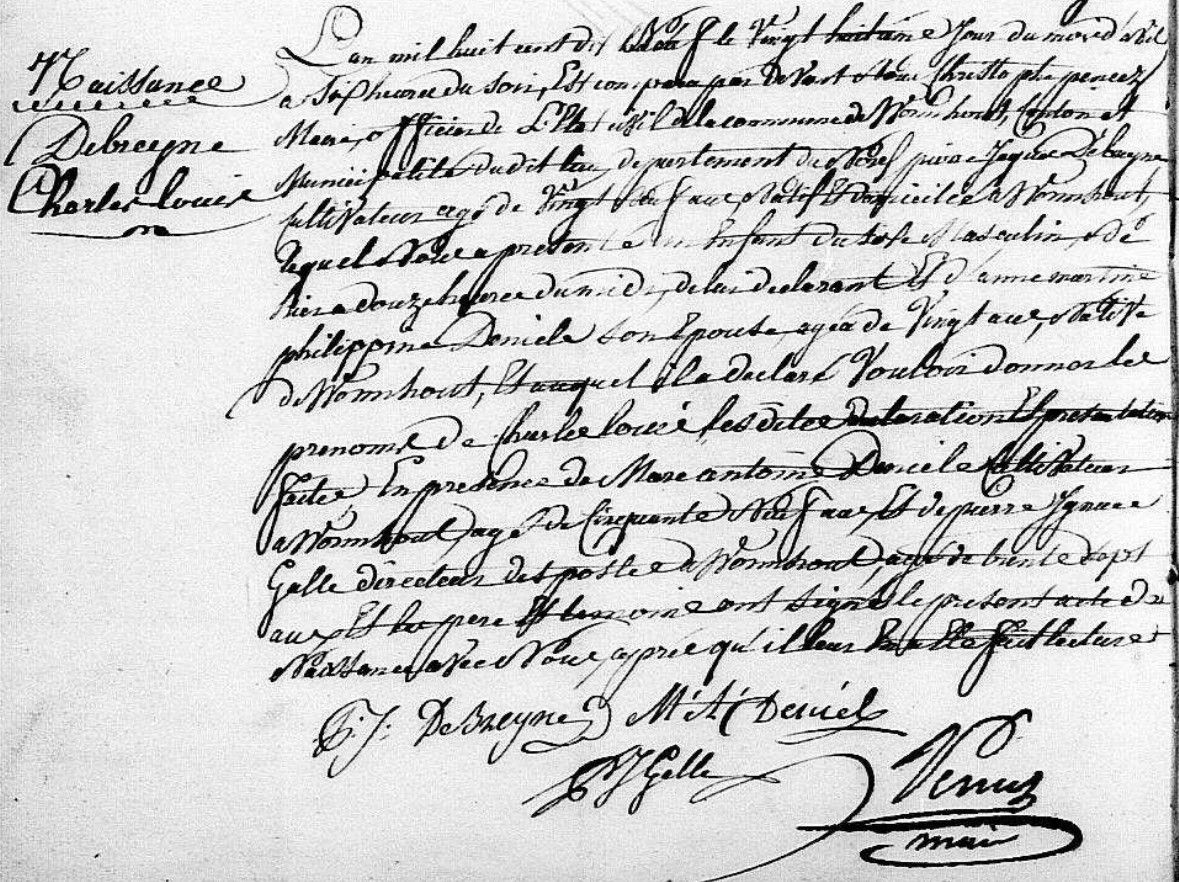 Naissance
Debreyne
Charles louis
L'an mil huit cent dix Neuf le Vingt huitième Jour du mois d'avril
a Six heures du soir, Est comparu par devant Nous Christophe
Maire, officier de L'Etat civil de la commune de Wormhout, Canton et
Municipalité dudit lieu, departement du Nord, pierre Jaques Debreyne
Cultivateur agé de Vingt Neuf ans Natif Et domicilié a Wormhout,
lequel Nous a presenté un Enfant du sexe Masculin, né
hier a douze heures du midi, de lui declarant Et d'anne martine
philippine Deniele son Epouse, agée de Vingt ans, Native
de Wormhout, Et auquel il a declaré Vouloir donner les
prenoms de Charles louis les dites declaration Et presentation
faites En presence de Marc antoine Deniele Cultivateur
a Wormhout, agé de Cinquante Neuf ans, Et de pierre Ignace
Gelle directeur des postes a Wormhout, agé de trente Sept
ans, Et les pere Et temoins ont signé le present acte de
Naissance avec Nous, après qu'il leur En a Eté fait lecture
P: J: DeBreyne M: A: Deniel
P J Gelle
maire